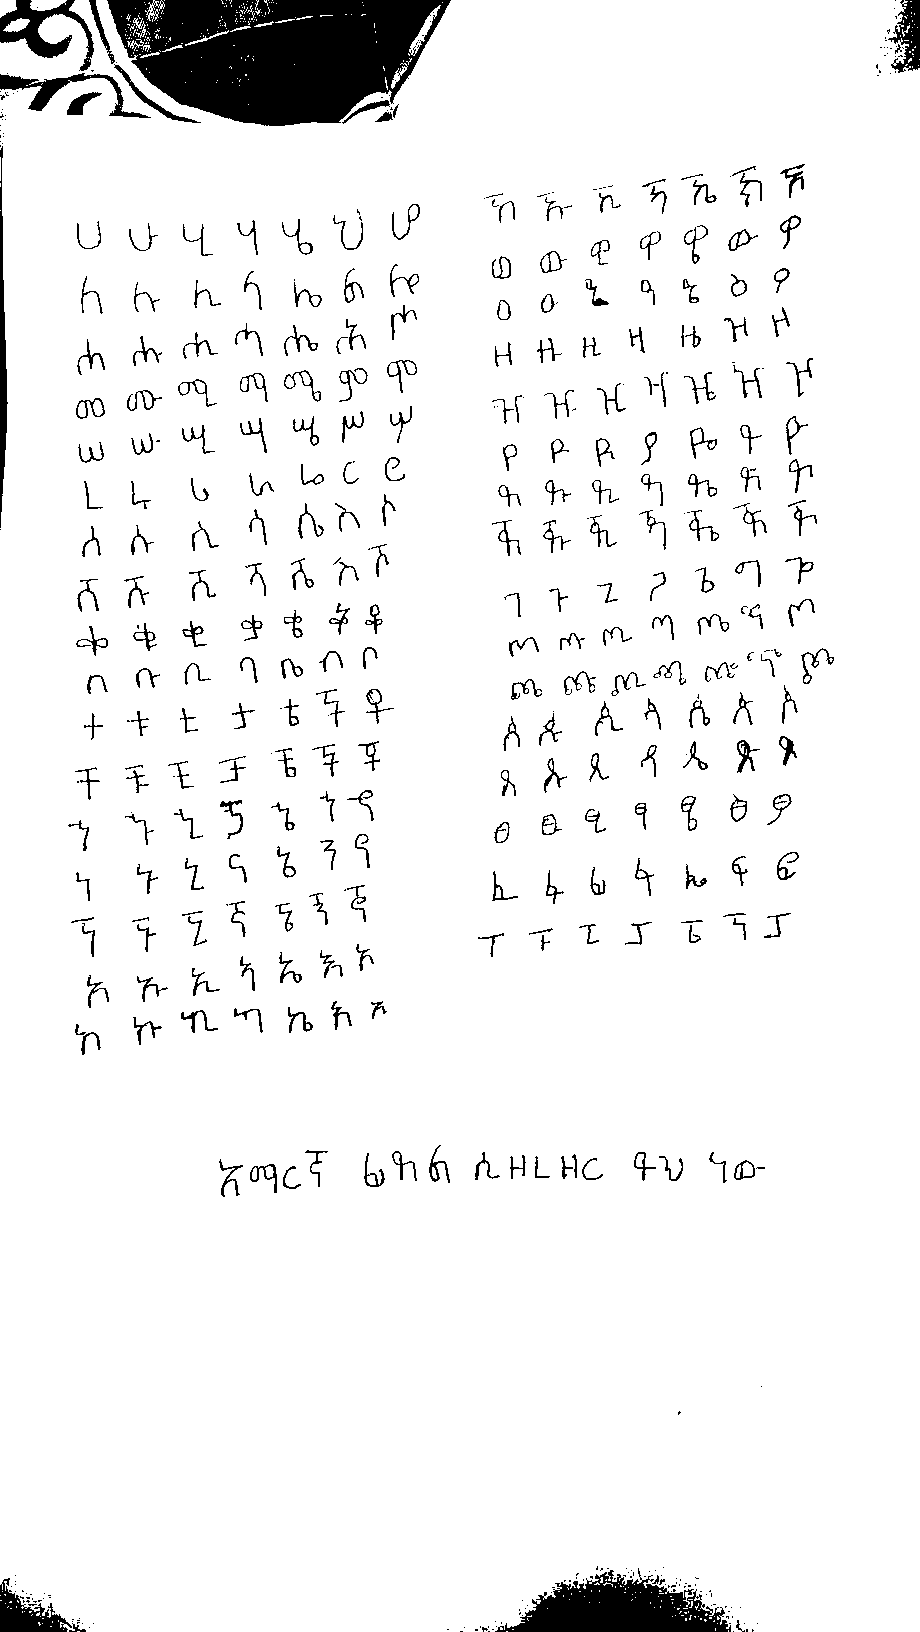 ሀ ሁ ሂ ሃ ሄ ህ ሆ
ለ ሉ ሊ ላ ሌ ል ሎ
ሐ ሑ ሒ ሓ ሔ ሕ ሖ
መ ሙ ሚ ማ ሜ ም ሞ
ሠ ሡ ሢ ሣ ሤ ሥ ሦ
ረ ሩ ሪ ራ ሬ ር ሮ
ሰ ሱ ሲ ሳ ሴ ስ ሶ
ሸ ሹ ሺ ሻ ሼ ሽ ሾ
ቀ ቁ ቂ ቃ ቄ ቅ ቆ
በ ቡ ቢ ባ ቤ ብ ቦ
ተ ቱ ቲ ታ ቴ ት ቶ
ቸ ቹ ቺ ቻ ቼ ች ቾ
ኀ ኁ ኂ ኃ ኄ ኅ ኆ
ነ ኑ ኒ ና ኔ ን ኖ
ኘ ኙ ኚ ኛ ኜ ኝ ኞ
አ ኡ ኢ ኣ ኤ እ ኦ
ከ ኩ ኪ ካ ኬ ክ ኮ
ኸ ኹ ኺ ኻ ኼ ኽ ኾ
ወ ዉ ዊ ዋ ዌ ው ዎ
ዐ ዑ ዒ ዓ ዔ ዕ ዖ
ዘ ዙ ዚ ዛ ዜ ዝ ዞ
ዠ ዡ ዢ ዣ ዤ ዥ ዦ
የ ዩ ዪ ያ ዬ ይ ዮ
ደ ዱ ዲ ዳ ዴ ድ ዶ
ጀ ጁ ጂ ጃ ጄ ጅ ጆ
ገ ጉ ጊ ጋ ጌ ግ ጎ
ጠ ጡ ጢ ጣ ጤ ጥ ጦ
ጨ ጩ ጪ ጫ ጬ ጭ ጮ
ጰ ጱ ጲ ጳ ጴ ጵ ጶ
ጸ ጹ ጺ ጻ ጼ ጽ ጾ
ፀ ፁ ፂ ፃ ፄ ፅ ፆ
ፈ ፉ ፊ ፋ ፌ ፍ ፎ
ፐ ፑ ፒ ፓ ፔ ፕ ፖ
አማርኛ ፊደል ሲዘረዘር ይህ ነው